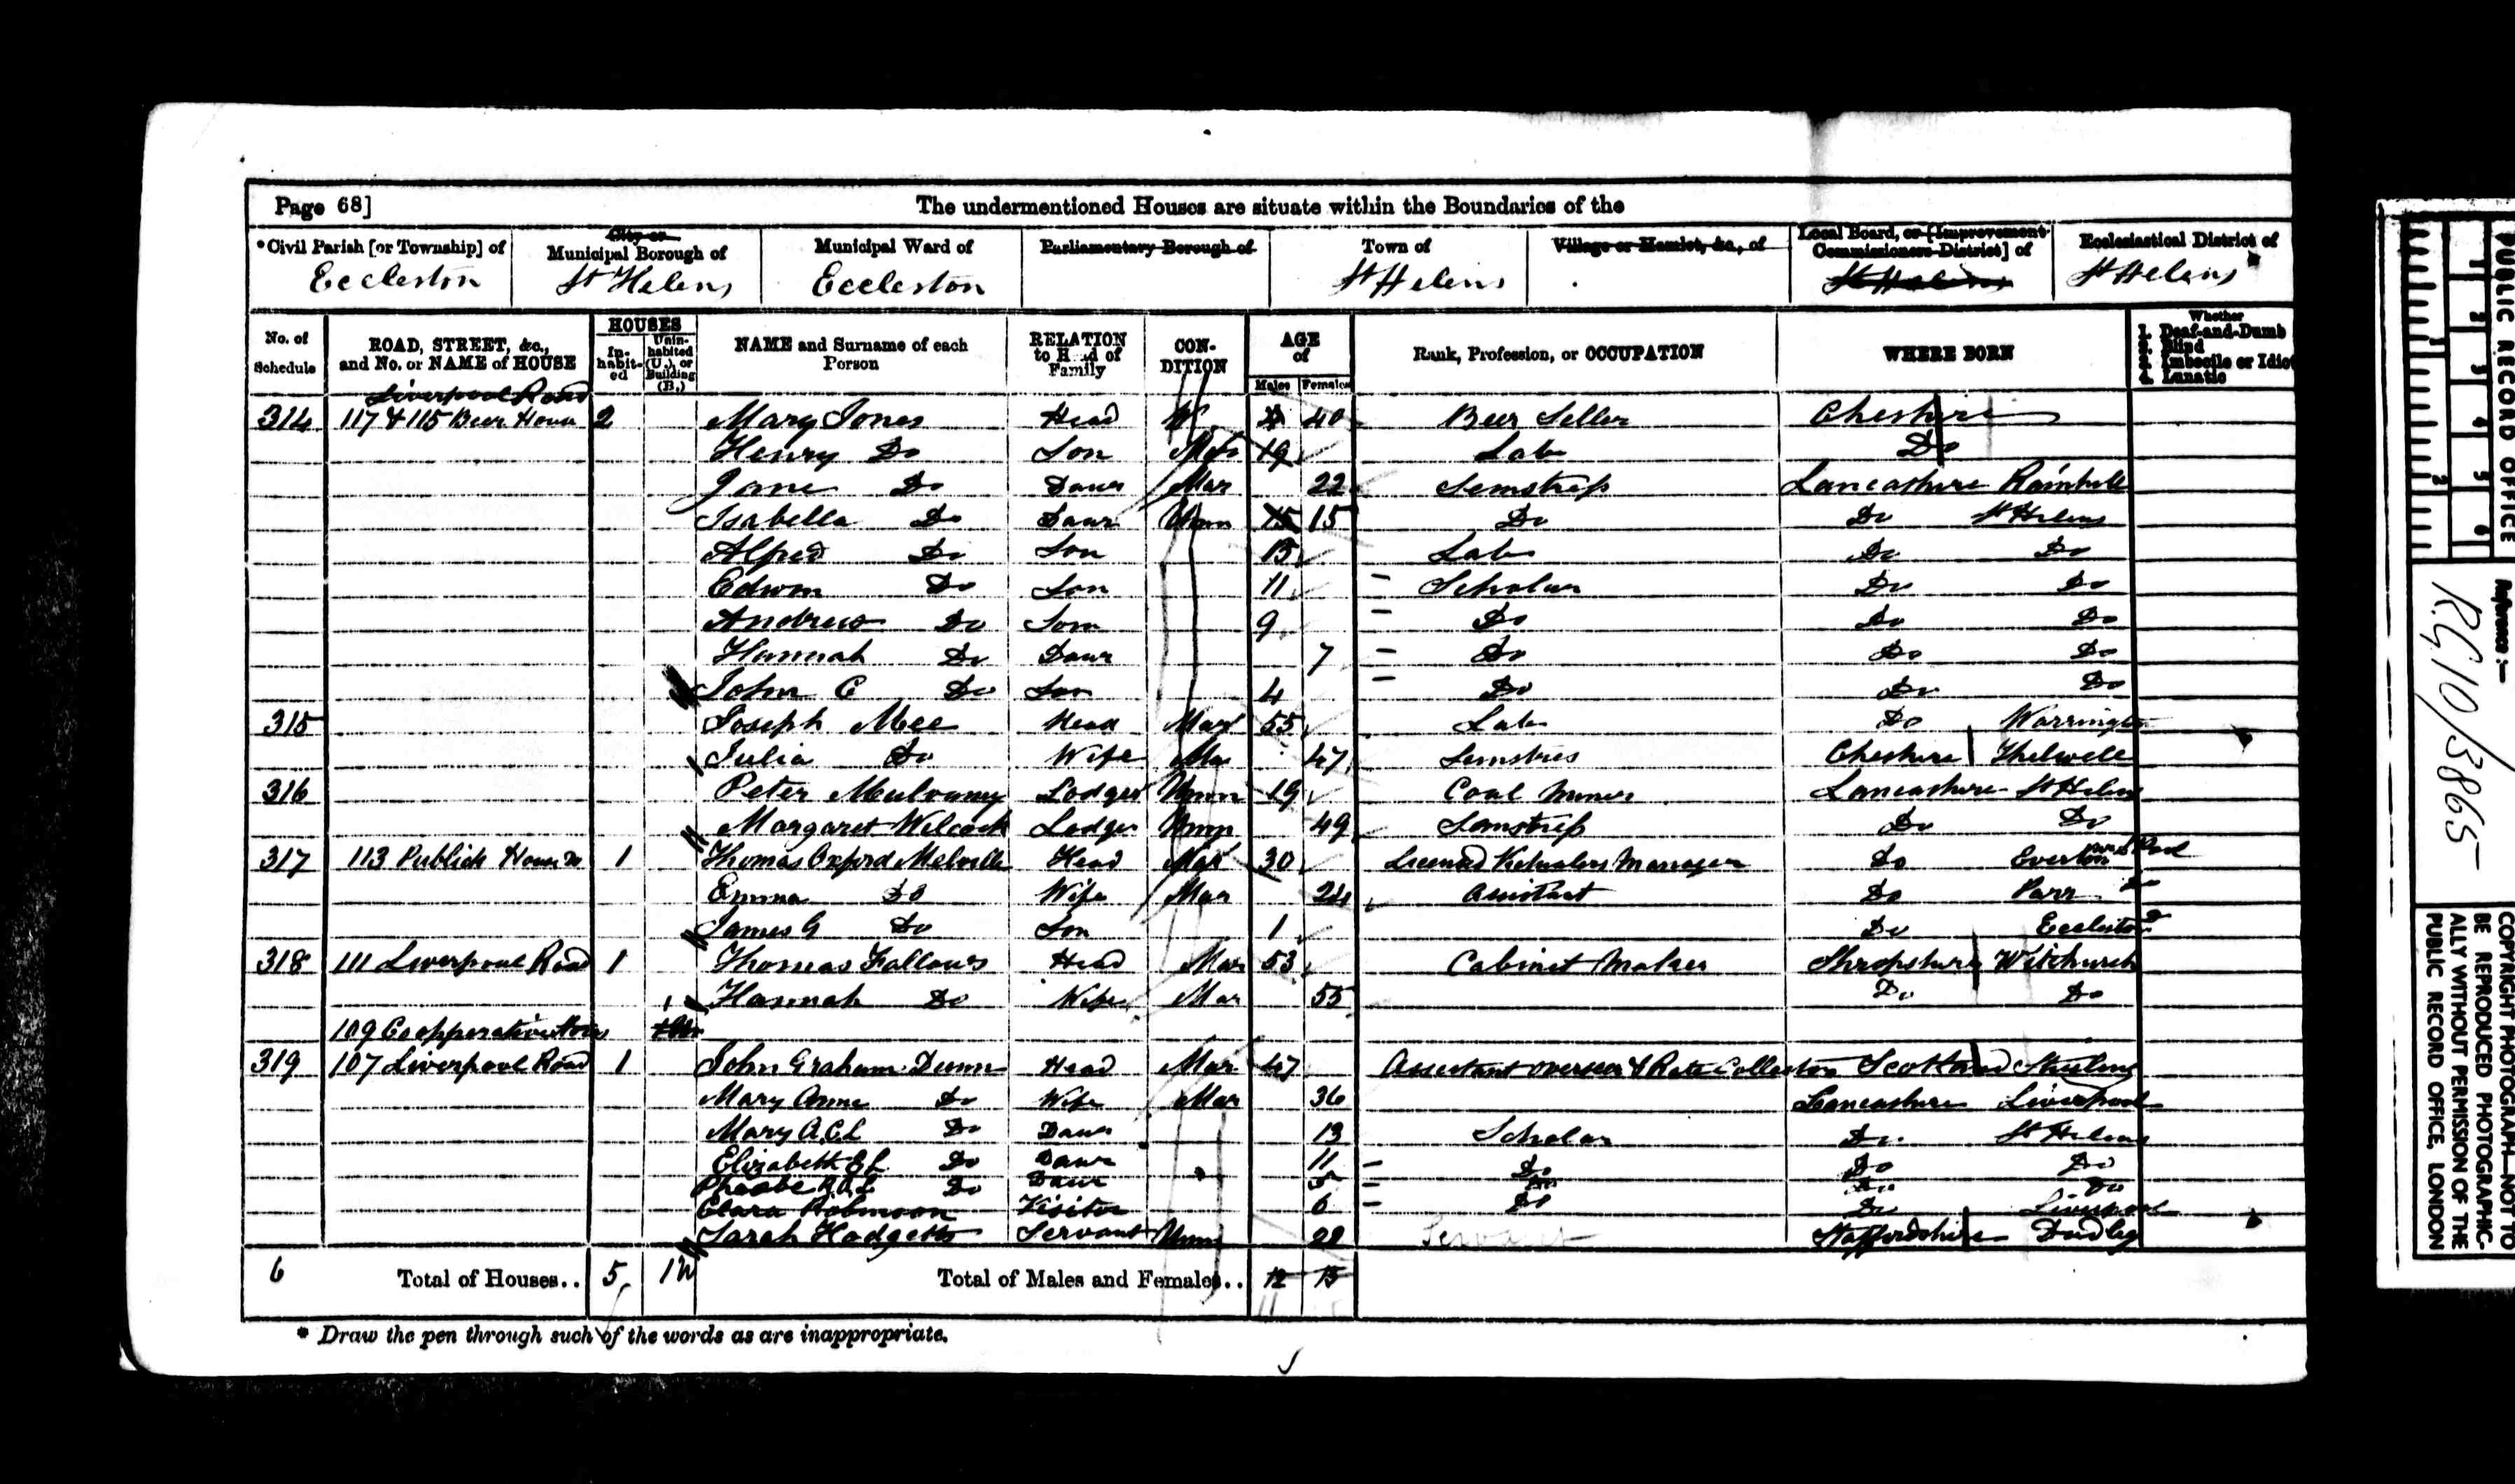 Page 68] The undermentioned Houses are situate within the Boundaries of the
*Civil Parish [or Township] of Eccleston
City or Municipal Borough of St Helens
Municipal Ward of Eccleston
Parliamentary Borough of
Town of St Helens
Village or Hamlet, &c., of
Local Board, or [Improvement Commissioners District] of St Helens
Ecclesiastical District of St Helens
No. of Schedule
ROAD, STREET, &c., and No. or NAME of HOUSE
HOUSES
In-habit-ed
Unin-habited (U.), or Building (B.)
NAME and Surname of each Person
RELATION to Head of Family
CON-DITION
AGE of
Males Females
Rank, Profession, or OCCUPATION
WHERE BORN
Whether
1. Deaf-and-Dumb
2. Blind
3. Imbecile or Idiot
4. Lunatic
Liverpool Road
314 117 & 115 Beer House 2 Mary Jones Head W 40 Beer Seller Cheshire
Henry Do Son 19 Lab Do
Jane Do Daur Mar 22 Semstriss Lancashire Rainhill
Isabella Do Daur Unm 15 15 Do Do St Helens
Alfred Do Son 13 Lab Do Do
Edwin Do Son 11 Scholar Do Do
Andrew Do Son 9 Do Do Do
Hannah Do Daur 7 Do Do Do
John C Do Son 4 Do Do Do
315 Joseph Mee Head Mar 55 Lab Do Warrington
Julia Do Wife Mar 47 Semstres Cheshire Thelwell
316 Peter Mulvanny Lodger Unm 19 Coal Miner Lancashire St Helens
Margaret Welcock Lodger Unm 49 Semstriss Do Do
317 113 Publick House Do 1 Thomas Oxford Melville Head Mar 30 Licensed Victualers Manager Do Everton
Emma Do Wife Mar 24 Assistant Do Parr Do
James G Do Son 1 Do Eccleston
318 111 Liverpool Road 1 Thomas Fallows Head Mar 53 Cabinet Maker Shropshire Witchurch
Hannah Do Wife Mar 55 Do Do
109 Coopperative
319 107 Liverpool Road 1 John Graham Dunn Head Mar 47 Assistant overseer & Rate Collector Scotland Stirling
Mary Anne Do Wife Mar 36 Lancashire Liverpool
Mary A.C.L Do Daur 13 Scholar Do St Helens
Elizabeth E L Do Daur 11 Do Do Do
Phoebe Do Daur 5 Do Do Do
Clara Robinson Visitor 6 Do Do Liverpool
Sarah Hodgetts Servant Unm 29 Servant Staffordshire Dudley
6 Total of Houses.. 5 1 Total of Males and Females.. 12 15
11
* Draw the pen through such of the words as are inappropriate.
PUBLIC RECORD OFFICE
1 2 3 4 5 6
1 2
Reference :—
R.G. 10/3865
COPYRIGHT PHOTOGRAPH—NOT TO
BE REPRODUCED PHOTOGRAPHIC-
ALLY WITHOUT PERMISSION OF THE
PUBLIC RECORD OFFICE, LONDON